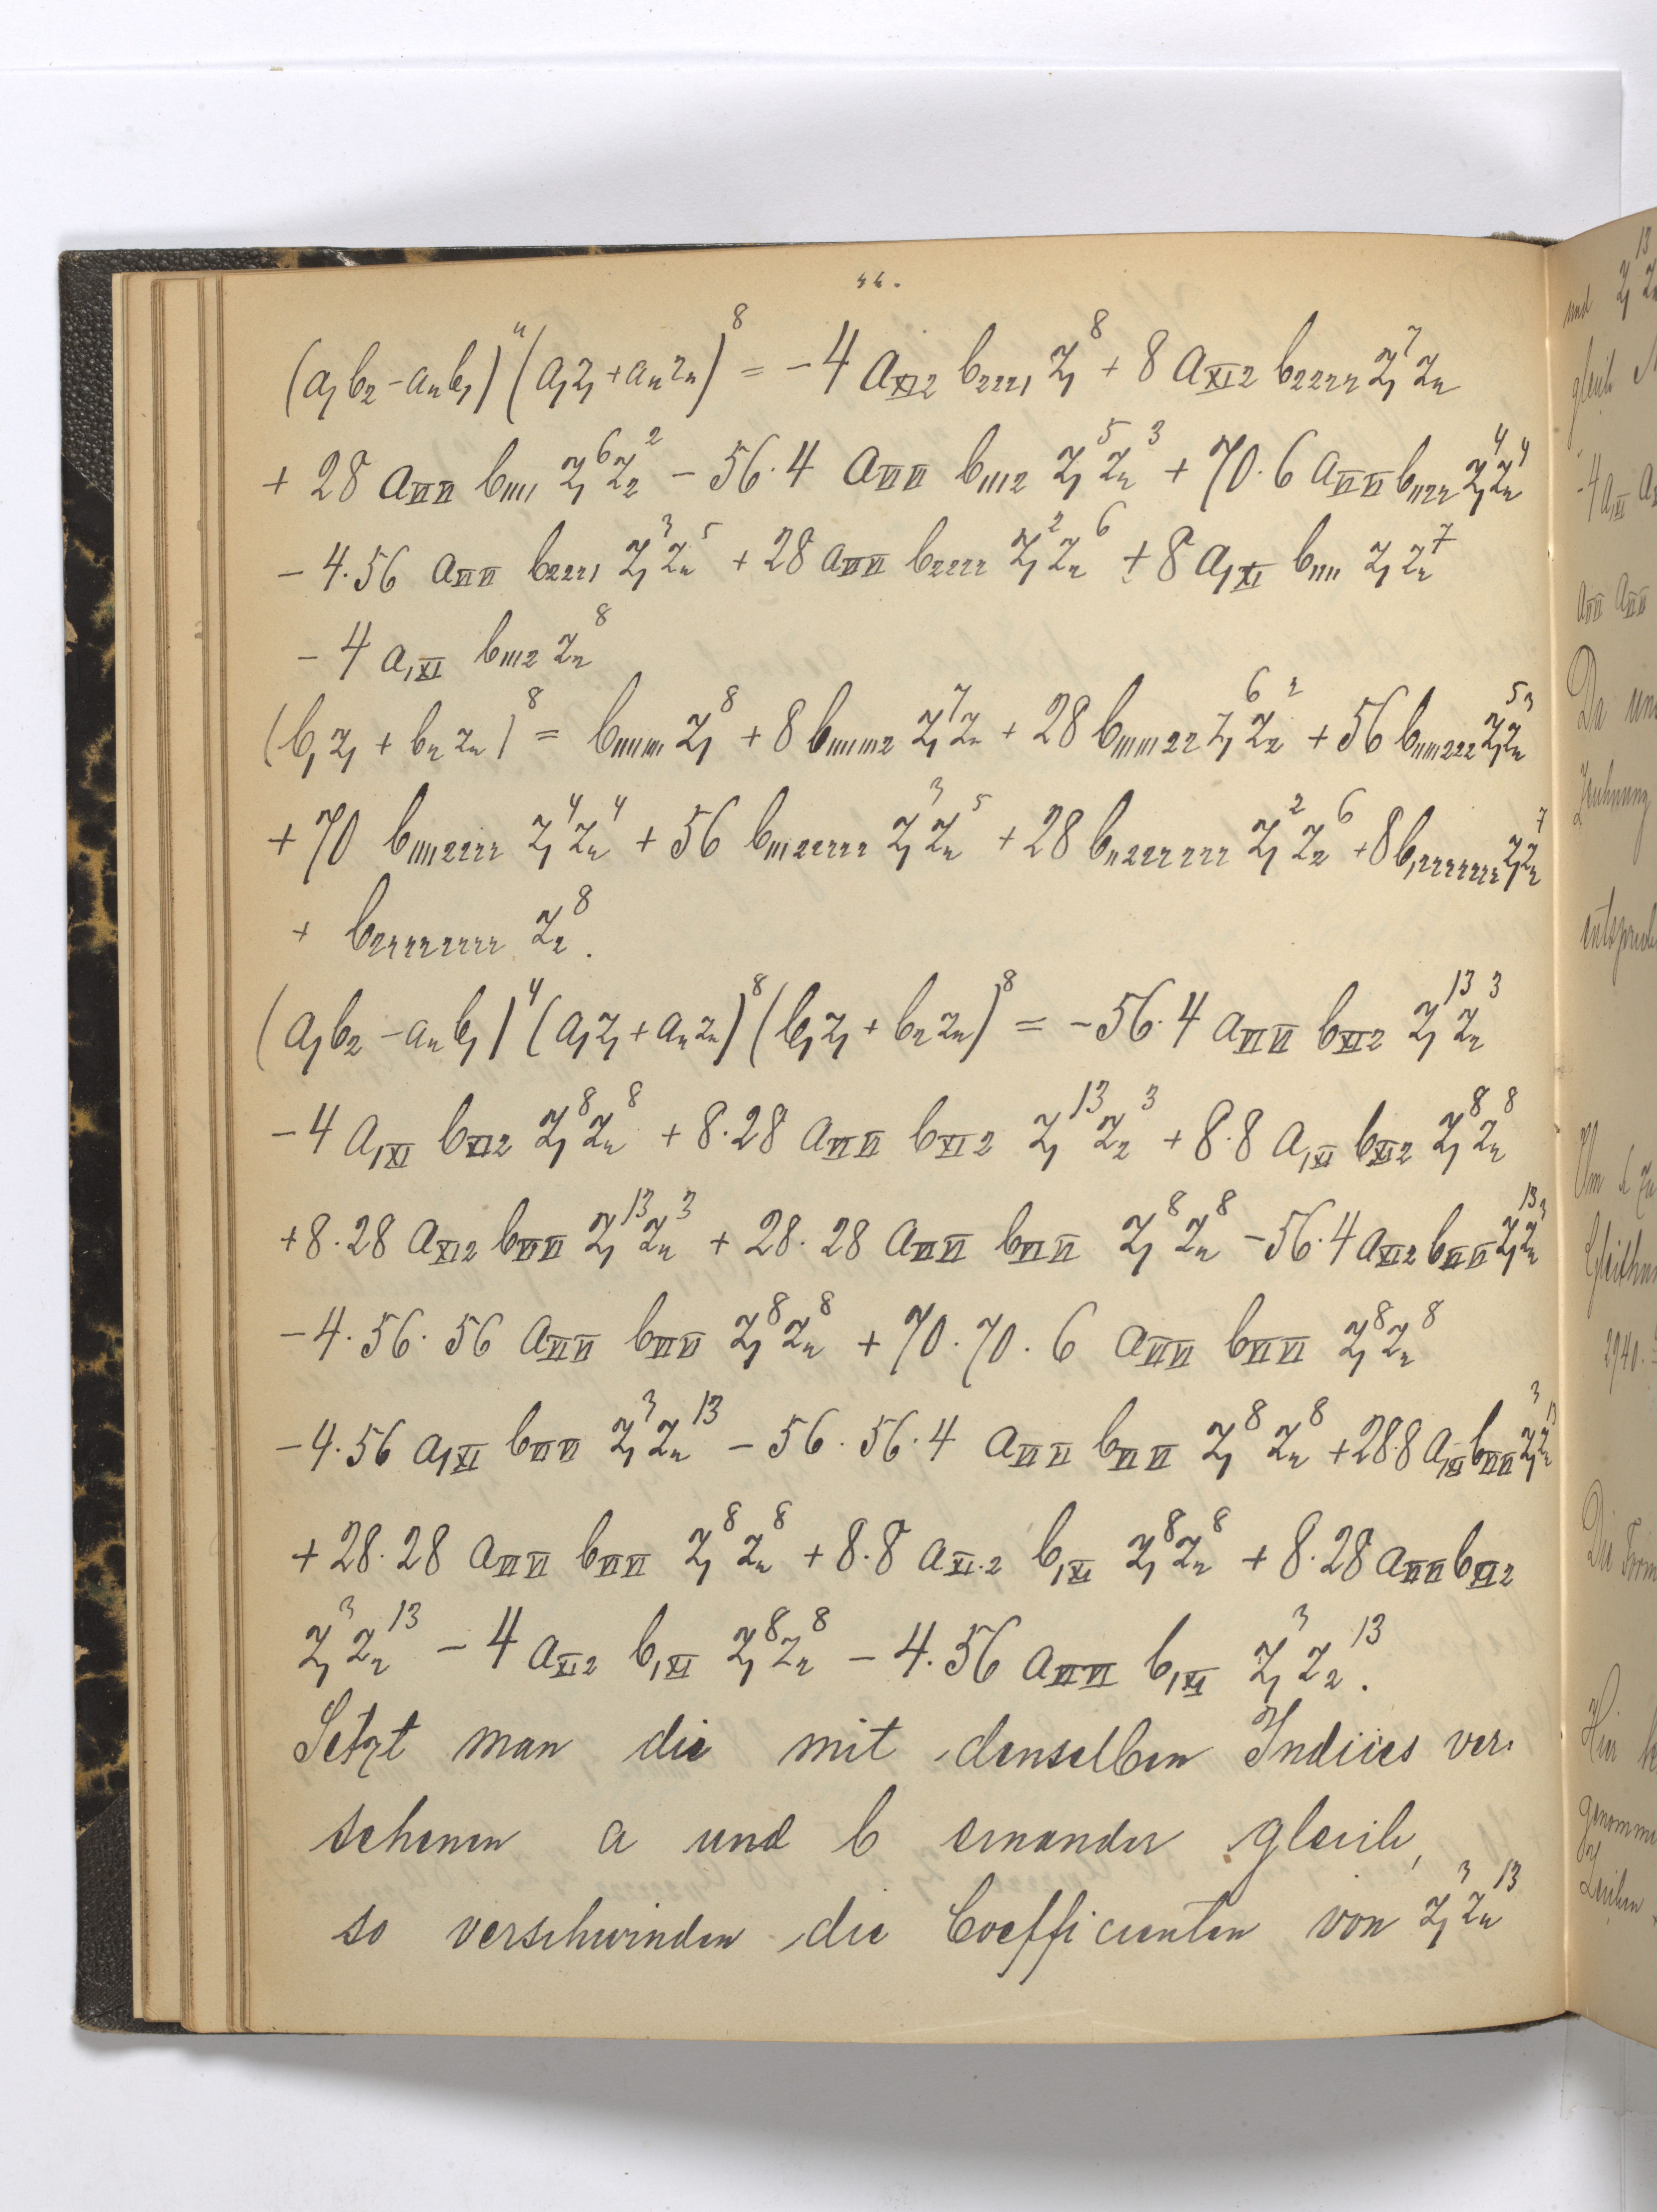 (a₁b₂-a₂b₁)⁴(a₁z₁+a₂z₂)⁸ = -4 a_XI2 b₂₂₂₁ z₁⁸ + 8 a_XI2 b₂₂₂₂ z₁⁷z₂
+ 28 a_VIVI b₁₁₁₁ z₁⁶z₂² - 56·4 a_VIVI b₁₁₁₂ z₁⁵z₂³ + 70·6 a_VIVI b₁₁₂₂ z₁⁴z₂⁴
- 4·56 a_VIVI b₂₂₂₁ z₁³z₂⁵ + 28 a_VIVI b₂₂₂₂ z₁²z₂⁶ + 8 a_1XI b₁₁₁₁ z₁z₂⁷
- 4 a_1XI b₁₁₁₂ z₂⁸
(b₁z₁ + b₂z₂)⁸ = b₁₁₁₁₁₁₁₁ z₁⁸ + 8 b₁₁₁₁₁₁₁₂ z₁⁷z₂ + 28 b₁₁₁₁₁₁₂₂ z₁⁶z₂² + 56 b₁₁₁₁₁₂₂₂ z₁⁵z₂³
+ 70 b₁₁₁₁₂₂₂₂ z₁⁴z₂⁴ + 56 b₁₁₁₂₂₂₂₂ z₁³z₂⁵ + 28 b₁₁₂₂₂₂₂₂ z₁²z₂⁶ + 8 b₁₂₂₂₂₂₂₂ z₁z₂⁷
+ b₂₂₂₂₂₂₂₂ z₂⁸.
(a₁b₂-a₂b₁)⁴(a₁z₁+a₂z₂)⁸(b₁z₁+b₂z₂)⁸ = -56·4 a_VIVI b_XI2 z₁¹³z₂³
- 4 a_1XI b_XI2 z₁⁸z₂⁸ + 8·28 a_VIVI b_XI2 z₁¹³z₂³ + 8·8 a_1XI b_XI2 z₁⁸z₂⁸
+ 8·28 a_XI2 b_VIVI z₁¹³z₂³ + 28·28 a_VIVI b_VIVI z₁⁸z₂⁸ - 56·4 a_XI2 b_VIVI z₁¹³z₂³
- 4·56·56 a_VIVI b_VIVI z₁⁸z₂⁸ + 70·70·6 a_VIVI b_VIVI z₁⁸z₂⁸
- 4·56 a_1XI b_VIVI z₁³z₂¹³ - 56·56·4 a_VIVI b_VIVI z₁⁸z₂⁸ + 28·8 a_1XI b_VIVI z₁³z₂¹³
+ 28·28 a_VIVI b_VIVI z₁⁸z₂⁸ + 8·8 a_XI·2 b_1XI z₁⁸z₂⁸ + 8·28 a_VIVI b_XI2
z₁³z₂¹³ - 4 a_XI2 b_1XI z₁⁸z₂⁸ - 4·56 a_VIVI b_1XI z₁³z₂¹³.
Setzt man die mit denselben Indices ver-
sehenen a und b einander gleich,
so verschwinden die Coefficienten von z₁³z₂¹³
und z₁¹³z
gleich
-4 a_1XI a
a_VIVI a_VIVI
Da